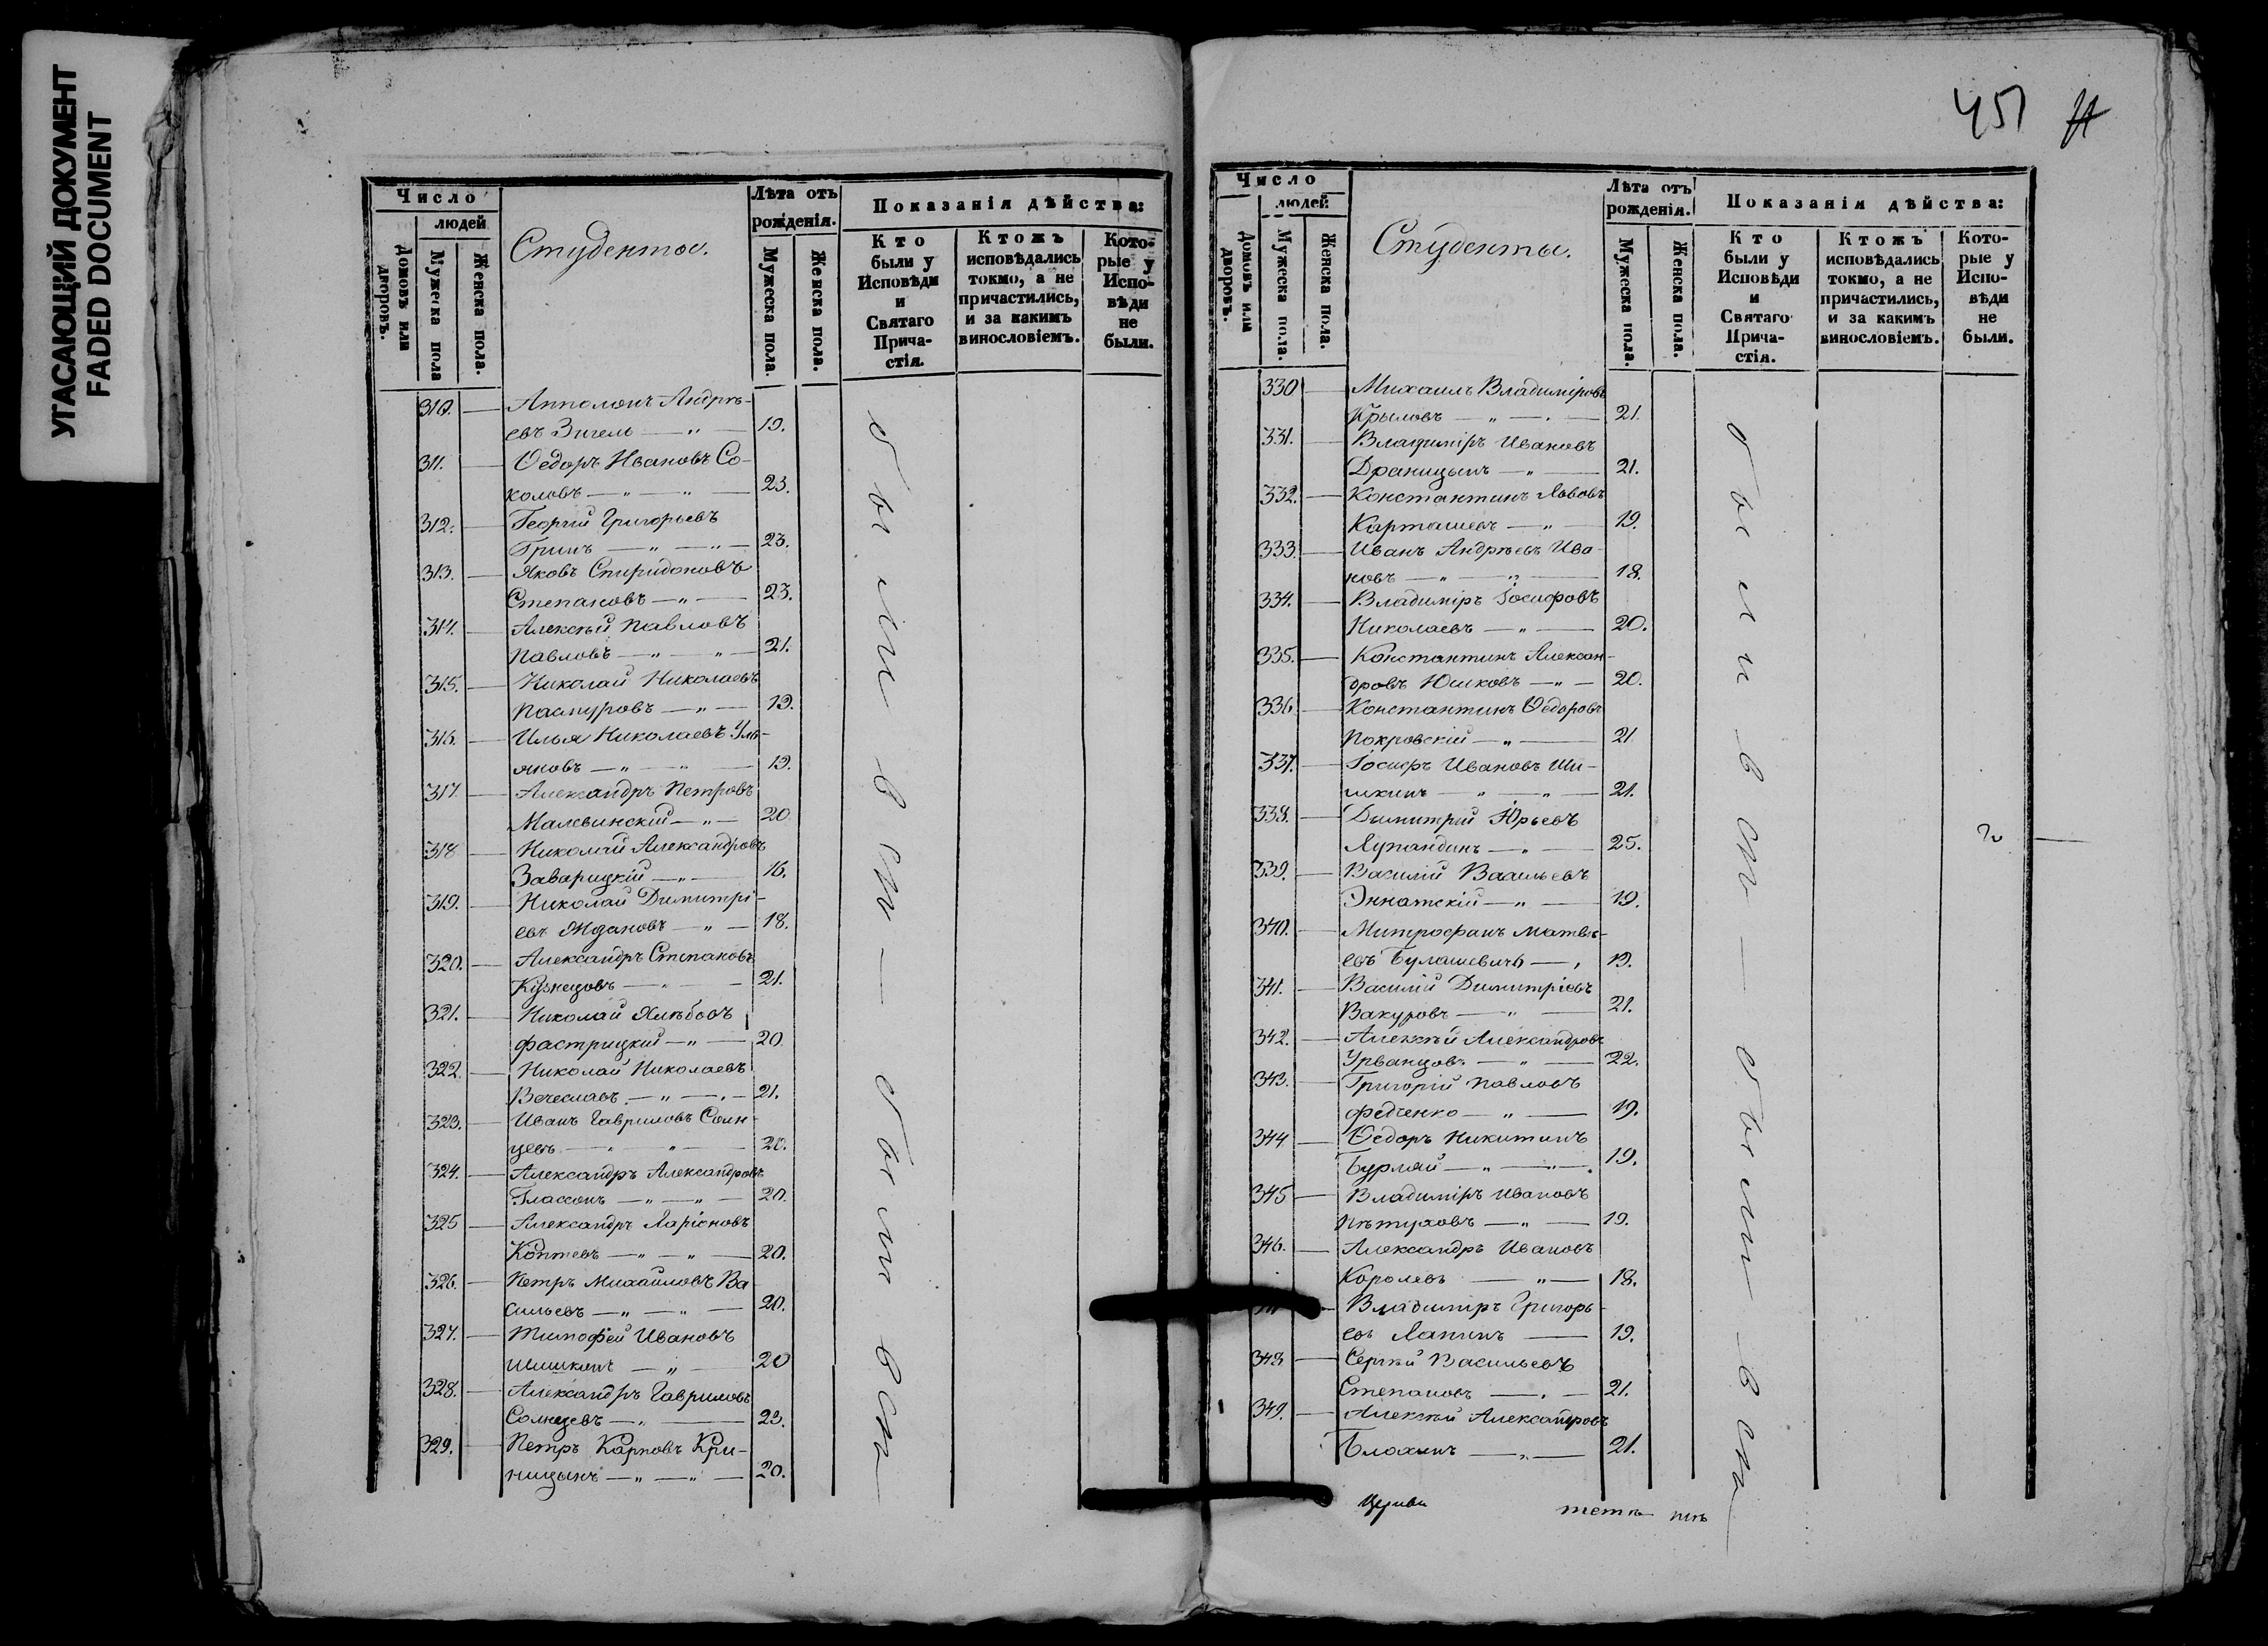 УГАСАЮЩИЙ ДОКУМЕНТ
FADED DOCUMENT
Число
людей
Домовъ или дворовъ.
Мужеска пола
Женска пола.
Студенты.
Лѣта отъ
рожденія.
Мужеска пола.
Женска пола.
Показанія дѣйства:
Кто
были у
Исповѣди
и
Святаго
Прича-
стія.
Ктожъ
исповѣдались
токмо, а не
причастились,
и за какимъ
винословіемъ.
Кото-
рые у
Испо-
вѣди
не
были.
310. Апполонъ Андрѣ-
евъ Зигель 19.
311. Ѳедоръ Ивановъ Со-
коловъ 23.
312. Георгій Григорьевъ
Гринъ 23.
313. Яковъ Спиридоновъ
Степановъ 23.
314. Алексѣй Павловъ
Павловъ 21.
315. Николай Николаевъ
19.
316. Илья Николаевъ Уль-
яновъ 19.
317. Александръ Петровъ
Малевинскій 20
318 Николай Александровъ
Заварицкій 16.
319. Николай Димитрі-
евъ Ждановъ 18.
320. Александръ Степановъ
Кузнецовъ 21.
321. Николай Хлѣбовъ
Фастрицкій 20.
322. Николай Николаевъ
Вечеславъ 21.
323. Иванъ Гавриловъ Солн-
цевъ 20.
324. Александръ Александровъ
Глассонъ 20.
325 Александръ Ларіоновъ
Коптевъ 20.
326. Петръ Михайловъ Ва-
сильевъ 20.
327. Тимофей Ивановъ
Шишкинъ 20
328. Александръ Гавриловъ
Солнцевъ 23.
329. Петръ Карповъ Кри-
ницынъ 20.
были в сп — были в сп
451
Число
людей
Домовъ или дворовъ.
Мужеска пола.
Женска пола.
Студенты.
Лѣта отъ
рожденія.
Мужеска пола.
Женска пола.
Показанія дѣйства:
Кто
были у
Исповѣди
и
Святаго
Прича-
стія.
Ктожъ
исповѣдались
токмо, а не
причастились,
и за какимъ
винословіемъ.
Кото-
рые у
Испо-
вѣди
не
были.
330 Михаилъ Владиміровъ
Крыловъ 21.
331. Владиміръ Ивановъ
Драницынъ 21.
332. Константинъ Львовъ
Карташевъ 19.
333. Иванъ Андрѣевъ Ива-
новъ 18.
334. Владиміръ Іосифовъ
Николаевъ 20.
335. Константинъ Алексан-
дровъ Юшковъ 20.
336 Константинъ Ѳедоровъ
Покровскій 21
337. Іосифъ Ивановъ Ши-
шкинъ 21.
338. Димитрій Юрьевъ
Лупандинъ 25.
339. Василій Васильевъ
Эннатскій 19.
340. Митрофанъ Матвѣ-
евъ Булашевичъ 19.
341. Василій Димитріевъ
Вакуровъ 21.
342. Алексѣй Александровъ
Урванцовъ 22.
343. Григорій Павловъ
Федченко 19.
344 Ѳедоръ Никитинъ
Бурлай 19.
345 Владиміръ Ивановъ
Пѣтуховъ 19.
346. Александръ Ивановъ
Королевъ 18.
Владиміръ Григорь-
евъ Лапинъ 19.
348 Сергѣй Васильевъ
Степановъ 21.
349. Алексѣй Александровъ
Блохинъ 21.
были в сп — были в сп